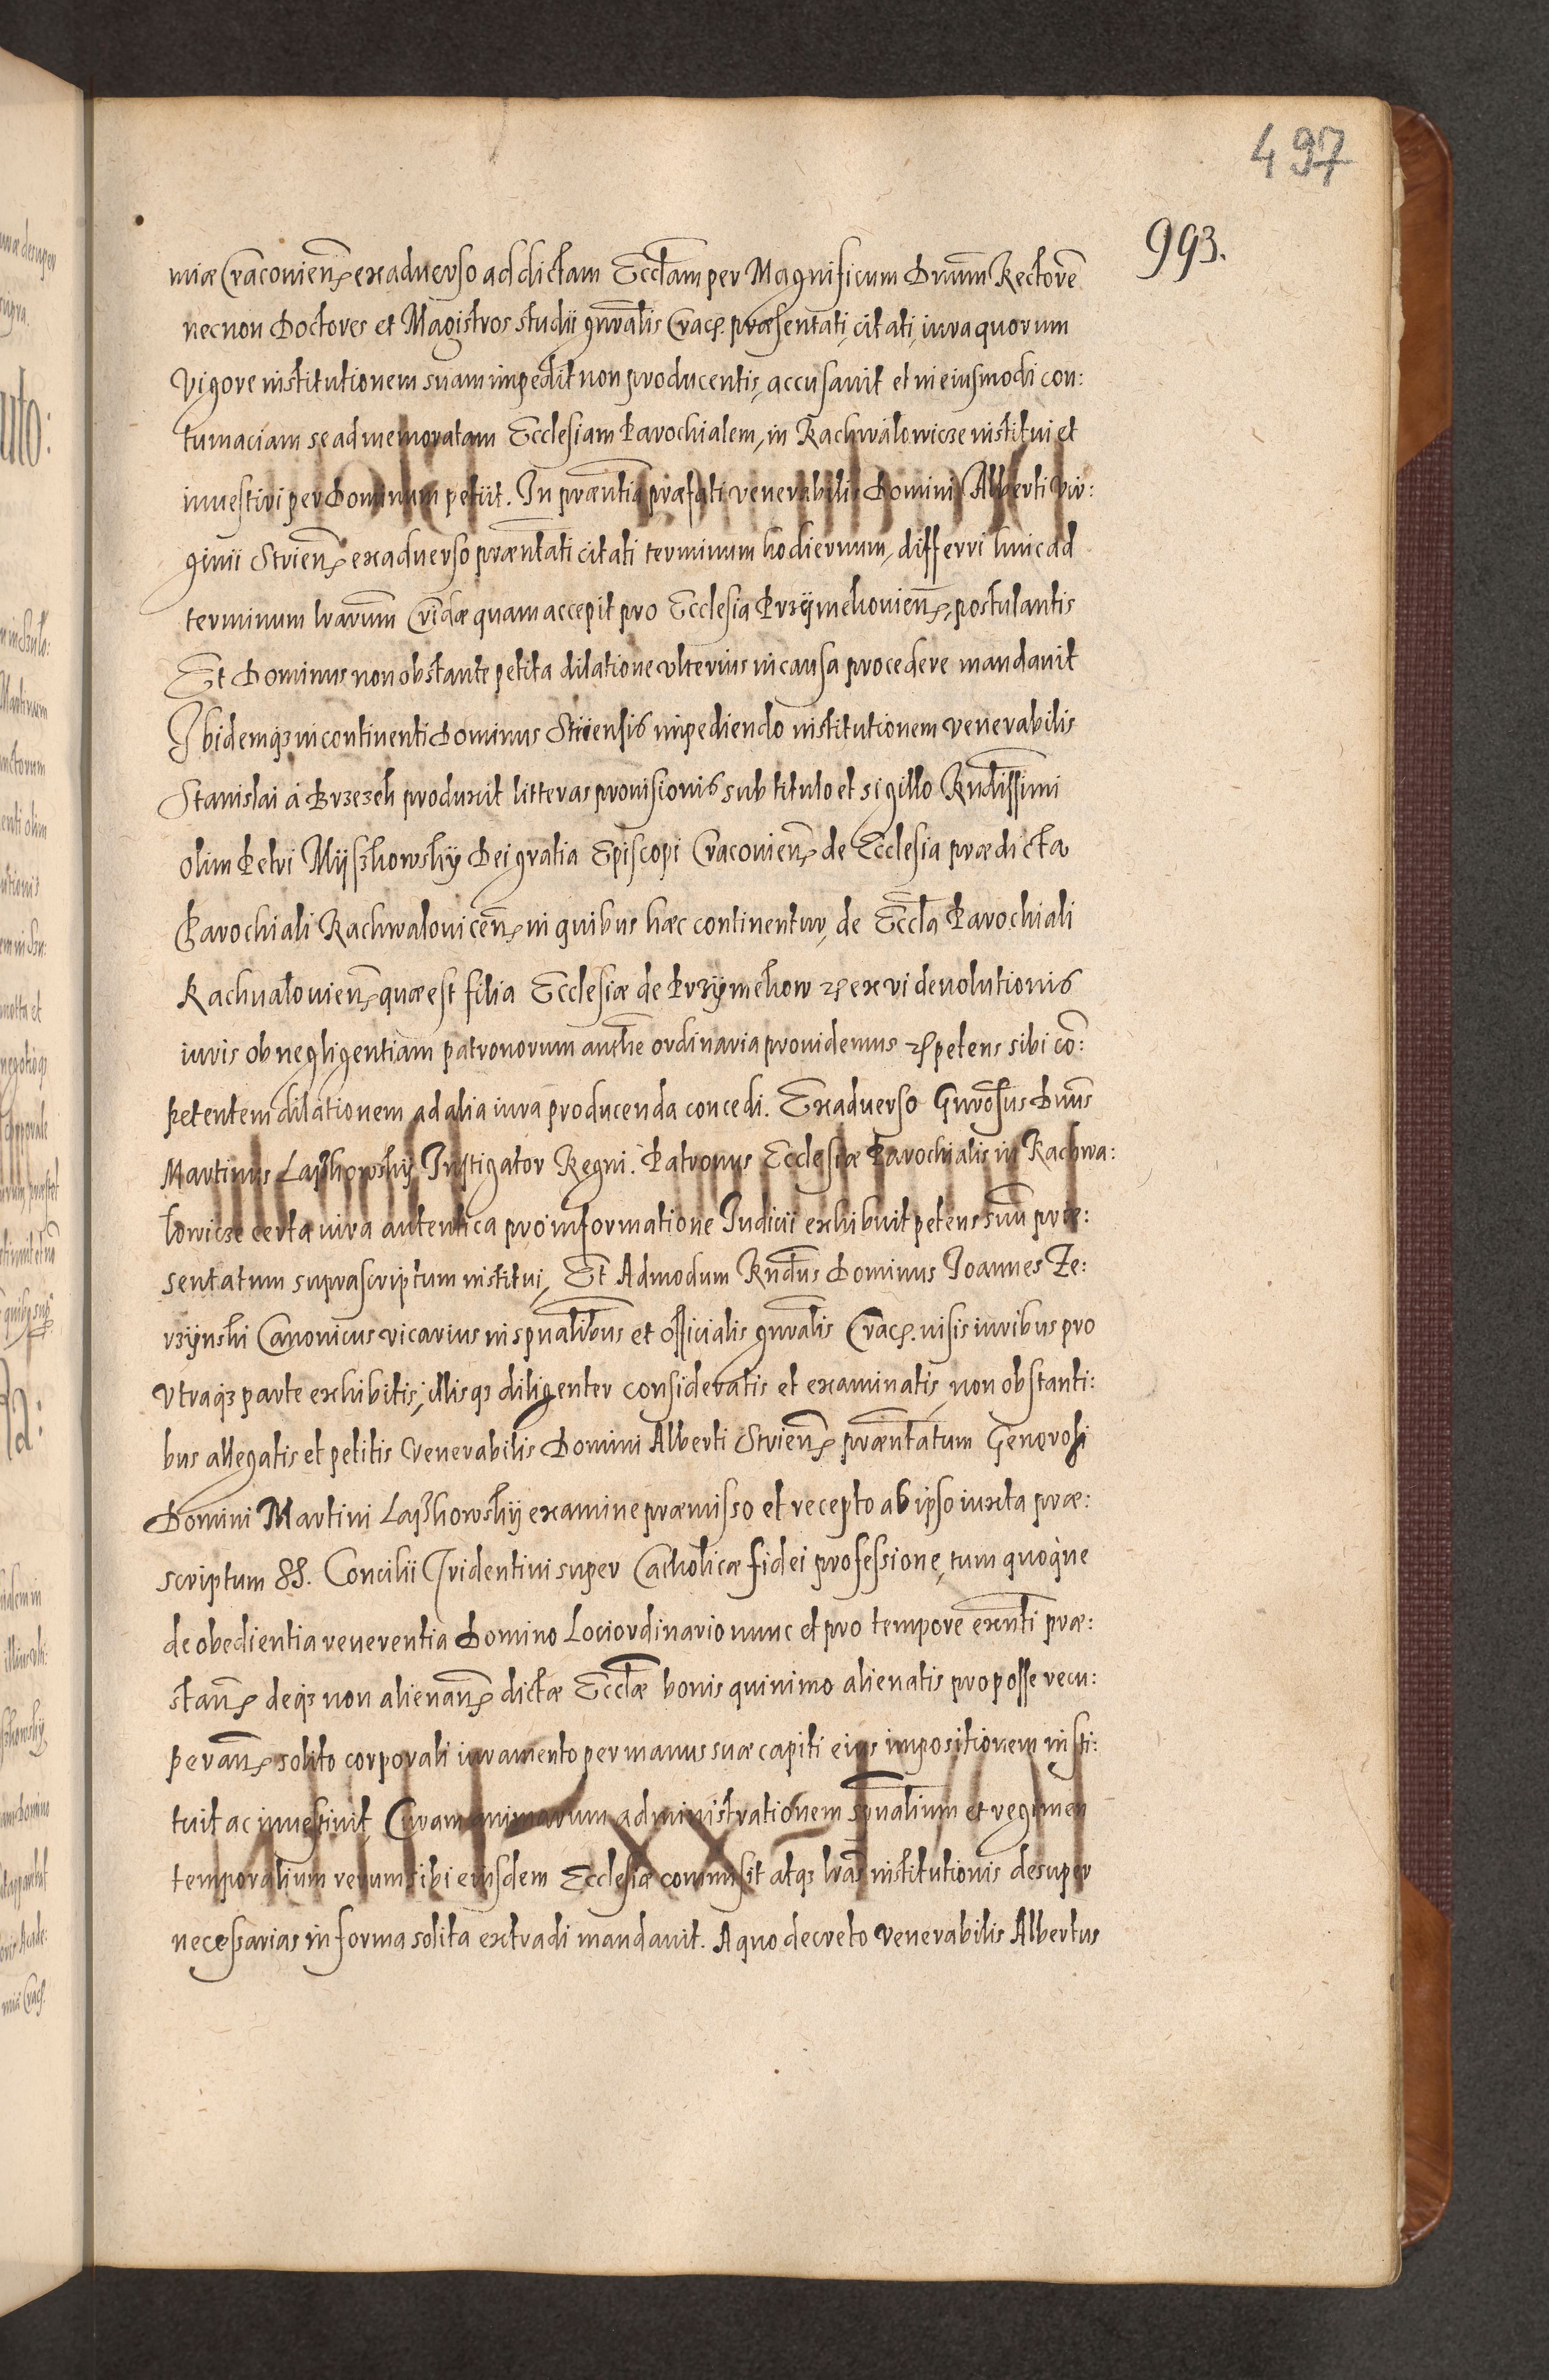 497
993.
miæ Cracovien̄ ex adverso ad dictam Eccl̄am per Magnificum Dn̄um Rectorē
necnon Doctores et Magistros studii gn̄ralis Crac. præsentati, citati, iura quorum
vigore institutionem suam impedit non producentis, accusavit et in eiusmodi con:
tumaciam se ad memoratam Ecclesiam Parochialem, in Rachwałowicze institui et
investiri per Dominum petiit. In præn̄tia præfati venerabilis Domini Alberti Vir:
ginii Strien̄ ex adverso præn̄tati citati terminum hodiernum, differri huic ad
terminum l̄rarum Cridæ quam accepit pro Ecclesia Przÿmekovien̄, postulantis
Et Dominus non obstante petita dilatione ulterius in causa procedere mandavit
Ibidemq₃ in continenti Dominus Striensis impediendo institutionem venerabilis
Stanislai à Brzezek produxit litteras provisionis sub titulo et sigillo Rn̄dissimi
olim Petri Mÿszkowskÿ Dei gratia Episcopi Cracovien̄ de Ecclesia prædicta
Parochiali Rachwalovicen̄ in quibus hæc continentur, de Eccl̄a Parochiali
Rachvalovien̄ quæ est filia Ecclesiæ de Przÿmekow ꝛc ex vi devolutionis
iuris ob negligentiam patronorum auth̄e ordinaria providemus ꝛc petens sibi cō:
petentem dilationem ad alia iura producenda concedi. Ex adverso Gn̄rosus Dn̄us
Martinus Łapszkowskÿ Instigator Regni. Patronus Ecclesiæ Parochialis in Rachwa:
łowicze certa iura autentica pro informatione Iudicii exhibuit petens suū præ:
sentatum suprascriptum institui, Et Admodum Rn̄dus Dominus Ioannes Ze:
rzÿnski Canonicus vicarius in sp̄ualibus et officialis gn̄ralis Crac. visis iuribus pro
utraq₃ parte exhibitis, illisq₃ diligenter consideratis et examinatis, non obstanti:
bus allegatis et petitis venerabilis Domini Alberti Strien̄ præn̄tatum Generosi
Domini Martini Łapszkowskÿ examine præmisso et recepto ab ipso iuxta præ:
scriptum SS. Concilii Tridentini super Catholicæ fidei professione, tum quoque
de obedientia reverentia Domino Loci ordinario nunc et pro tempore exn̄ti præ:
stan̄ deq₃ non alienan̄ dictæ Eccl̄æ bonis quinimo alienatis pro posse recu:
peran̄ solito corporali iuramento per manus suæ capiti eius impositionem insti:
tuit ac investivit Curam animarum administrationem sp̄ualium et regimen
temporalium rerum sibi eiusdem Ecclesiæ commisit atq₃ l̄ras institutionis desuper
necessarias in forma solita extradi mandavit. A quo decreto venerabilis Albertus